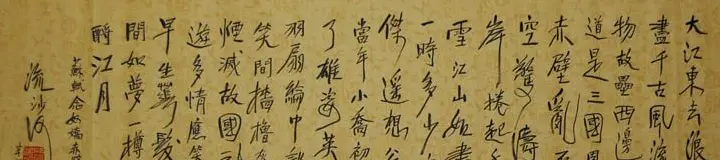 大江東去浪
盡千古風流
物故壘西邊
道是三國周
赤壁亂石
空驚濤
岸捲起千
雪江山如畫
一時多少
傑遥想公
當年小喬初
了雄姿英
羽扇綸巾談
笑間檣櫓
煙滅故國
遊多情應笑
早生華髮
間如夢一樽
酹江月
蘇軾念奴嬌赤
流沙河